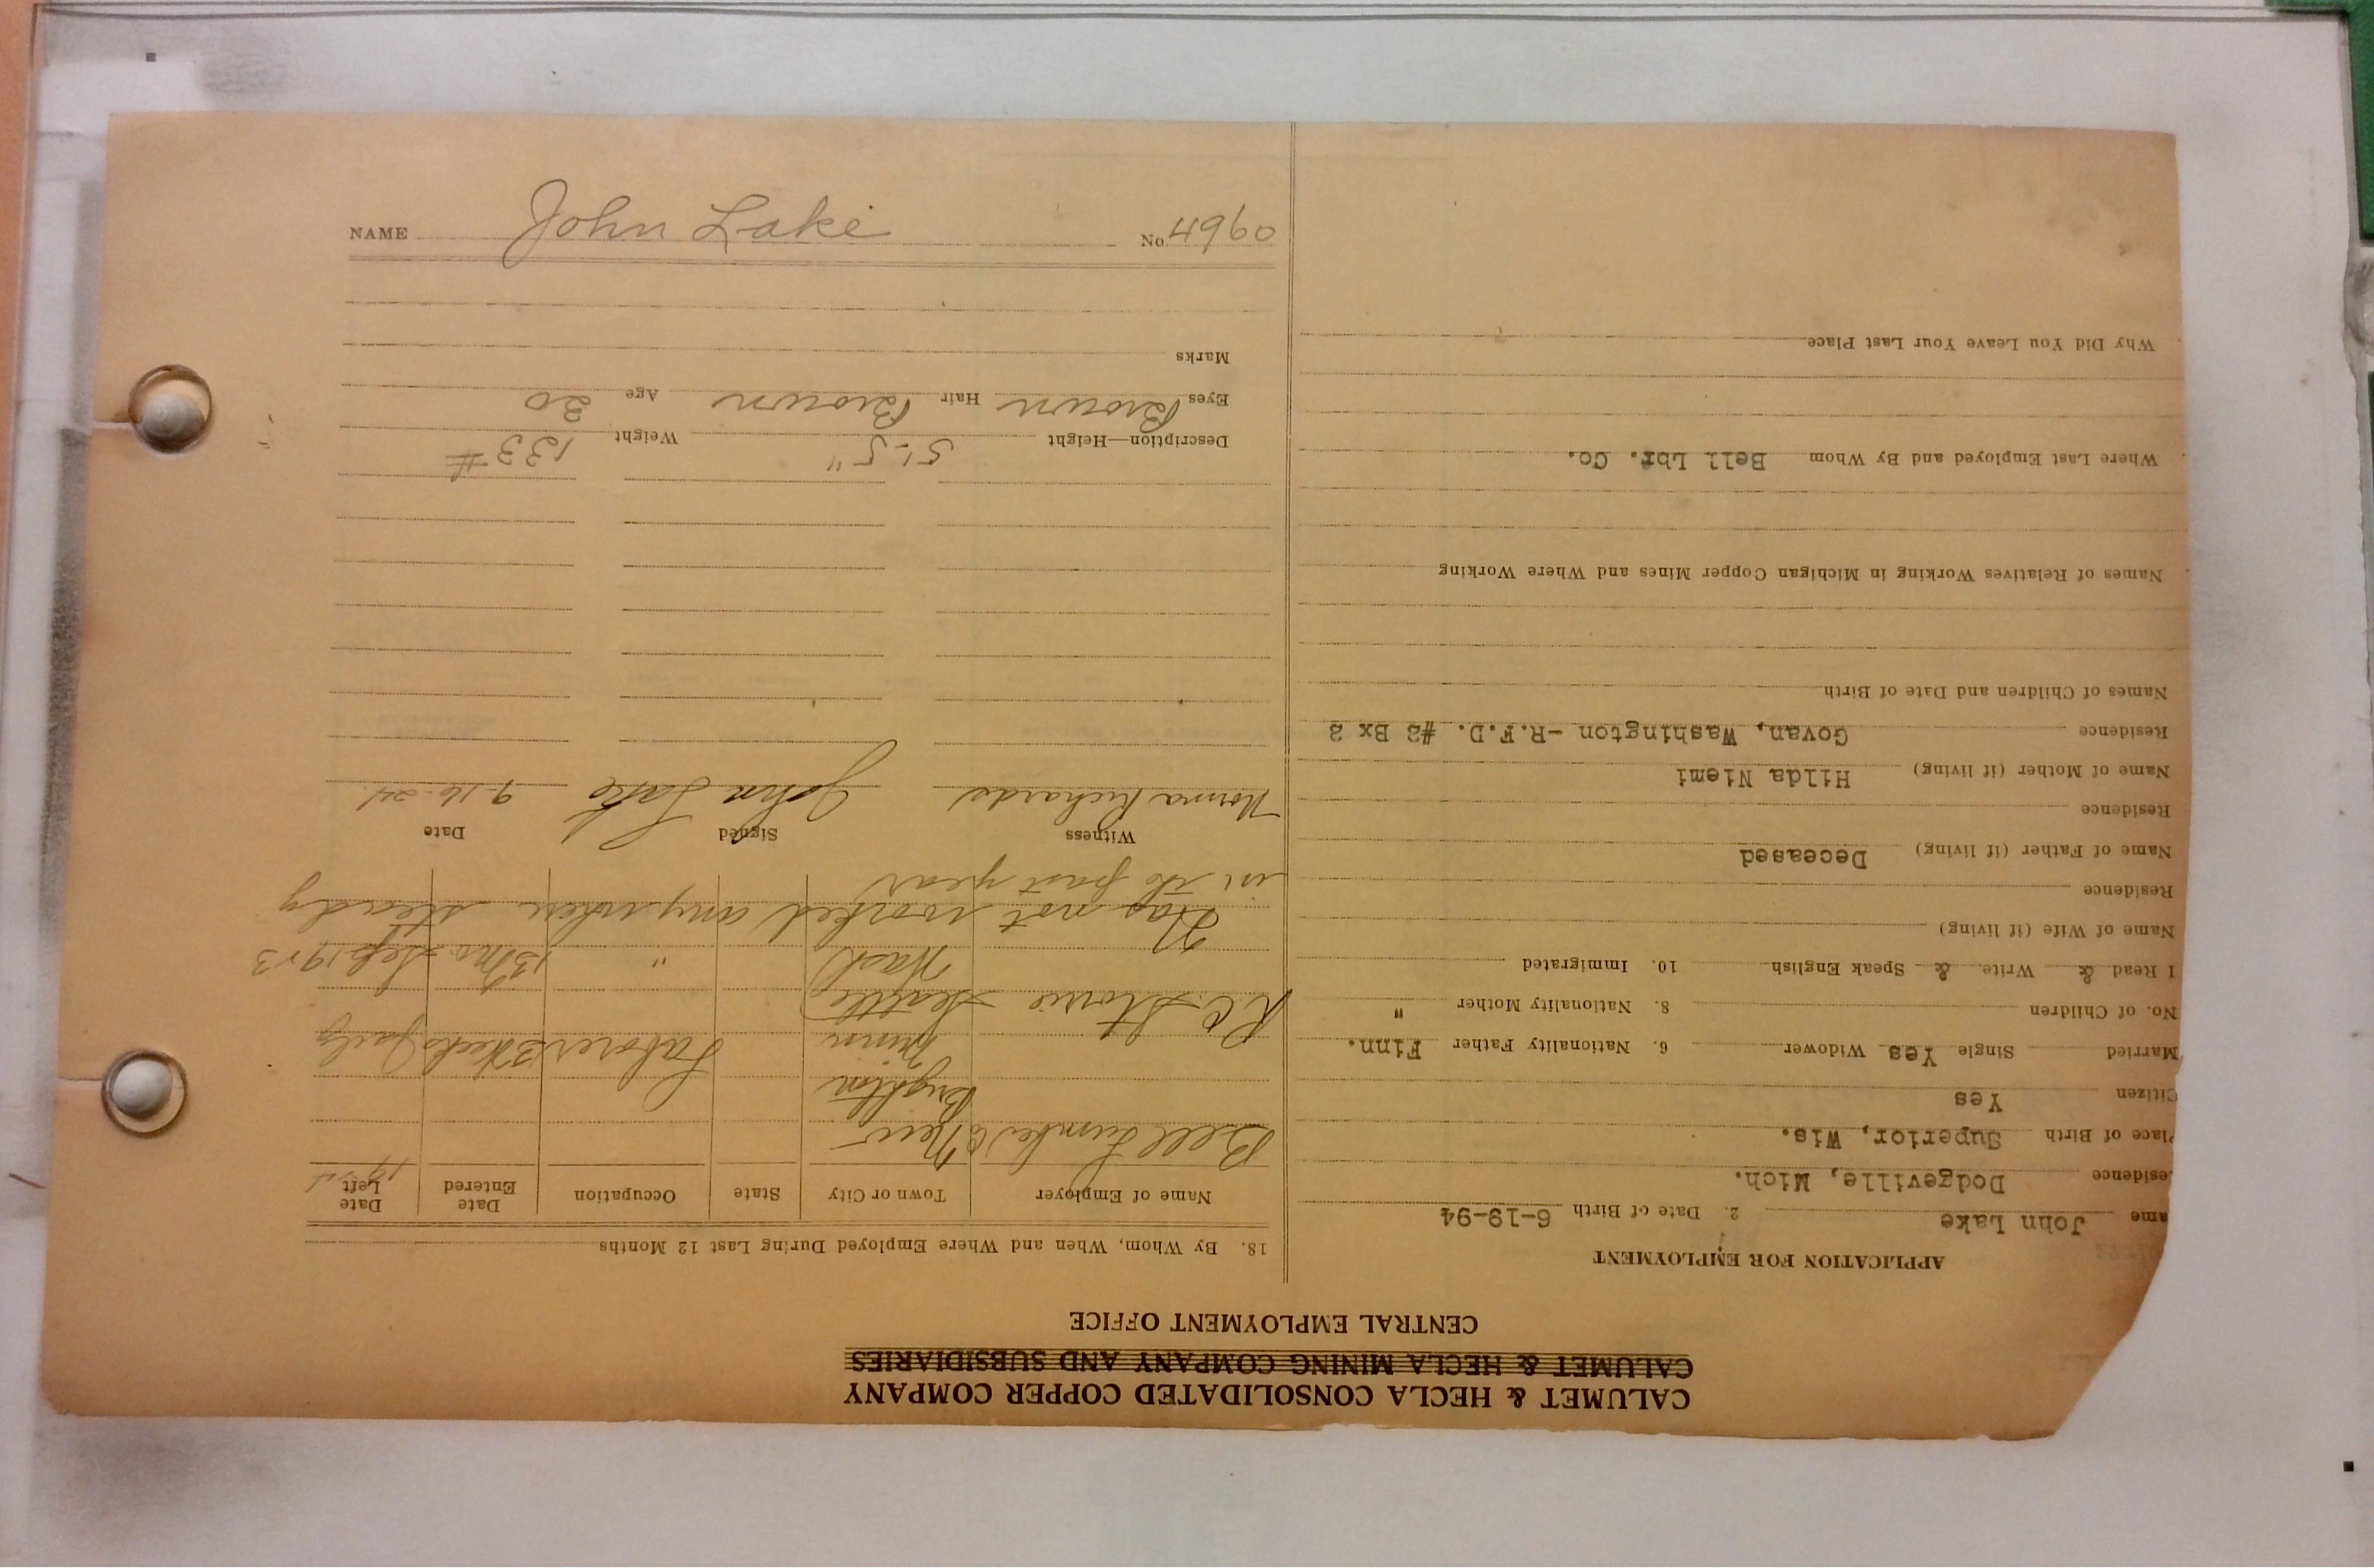 CALUMET & HECLA CONSOLIDATED COPPER COMPANY
CALUMET & HECLA MINING COMPANY AND SUBSIDIARIES
CENTRAL EMPLOYMENT OFFICE
APPLICATION FOR EMPLOYMENT
ame John Lake 2. Date of Birth 6-19-94
esidence Dodgeville, Mich.
Place of Birth Superior, Wis.
Citizen Yes
Married Single Yes Widower 6. Nationality Father Finn.
No. of Children 8. Nationality Mother "
I Read & Write & Speak English 10. Immigrated
Name of Wife (if living)
Residence
Name of Father (if living) Deceased
Residence
Name of Mother (if living) Hilda Niemi
Residence Govan, Washington -R.F.D. #2 Bx 2
Names of Children and Date of Birth
Names of Relatives Working in Michigan Copper Mines and Where Working
Where Last Employed and By Whom Bell Lbr. Co.
Why Did You Leave Your Last Place
18. By Whom, When and Where Employed During Last 12 Months
Name of Employer Town or City State Occupation Date Entered Date Left
Bell Lumber Co New
Brighton
Minn Laborer 3 Weeks July
R.C. Storrie Seattle
Wash " 13 mo. Sep 1923
Has not worked any where steady
in the past year
Witness Signed Date
Norma Richards John Lake 9-16-24
Description—Height 5'-5" Weight 133#
Eyes Brown Hair Brown Age 30
Marks
NAME John Lake No. 4960